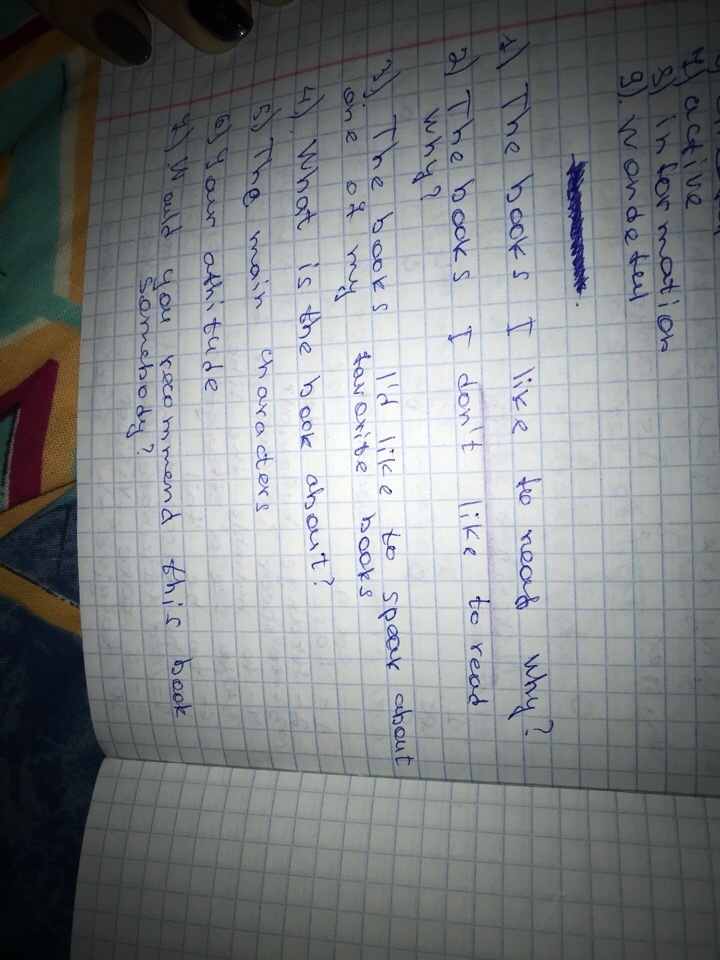 7) active
8) information
9). wondeful
1) The books I like to read why?
2) The books I don't like to read
why?
3) The books I'd like to speak about
one of my favorite books
4) What is the book about?
5) The main characters
6) Your attitude
7) Would you recommend this book
somebody?